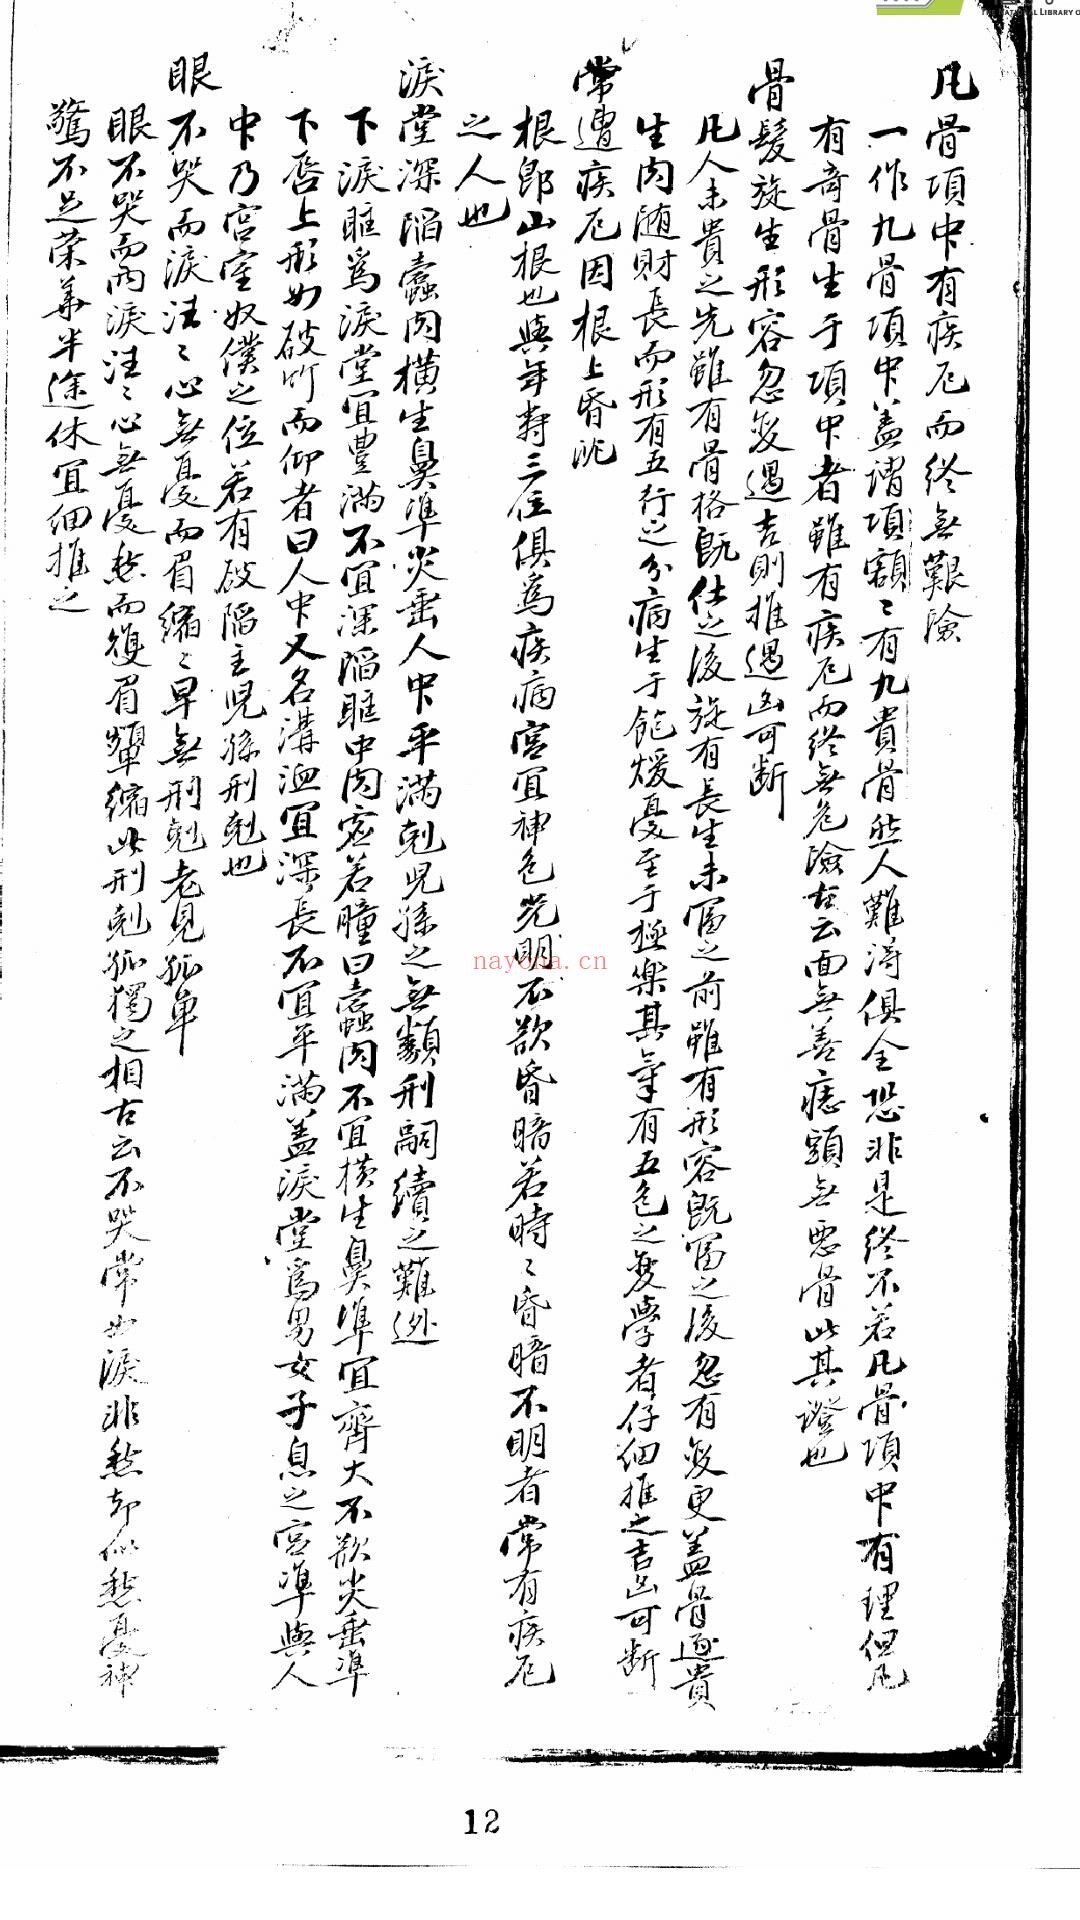 THE NATIONAL LIBRARY O
凡骨項中有疾厄而終無艱險
一作九骨項中蓋謂項額〻有九貴骨然人難得俱全恐非是終不若凡骨項中有理但凡
有奇骨生于項中者雖有疾厄而終無危險古云面無善痣頭無惡骨此其證也
骨髮旋生形容忽变遇吉則推遇凶可断
凡人未貴之先雖有骨格既仕之後旋有長生未富之前雖有形容既富之後忽有变更蓋骨逐貴
生肉随財長而形有五行之分病生于飽煖憂至于極樂其氣有五色之变學者仔细推之吉凶可断
常遭疾厄因根上昏沈
根即山根也與年壽三位俱爲疾病宮宜神色光明不欲昏暗若時〻昏暗不明者常有疾厄
之人也
淚堂深陷蠹肉横生鼻準尖垂人中平满剋児孫之無類刑嗣續之難逃
下淚眶爲淚堂宜豊满不宜深陷眶中肉虚若瞳曰蠹肉不宜横生鼻準宜齊大不欲尖垂準
下唇上形如破竹而仰者曰人中又名溝洫宜深長不宜平满蓋淚堂爲男女子息之宮準與人
中乃宮室奴僕之位若有破陷主児孫刑剋也
眼不哭而淚汪〻心無憂而眉縮〻早無刑剋老見孤单
眼不哭而兩淚汪〻心無憂愁而復眉顰縮此刑剋孤獨之相古云不哭常如淚非愁却似愁憂神
驚不足荣華半途休宜细推之
nayona.cn
12